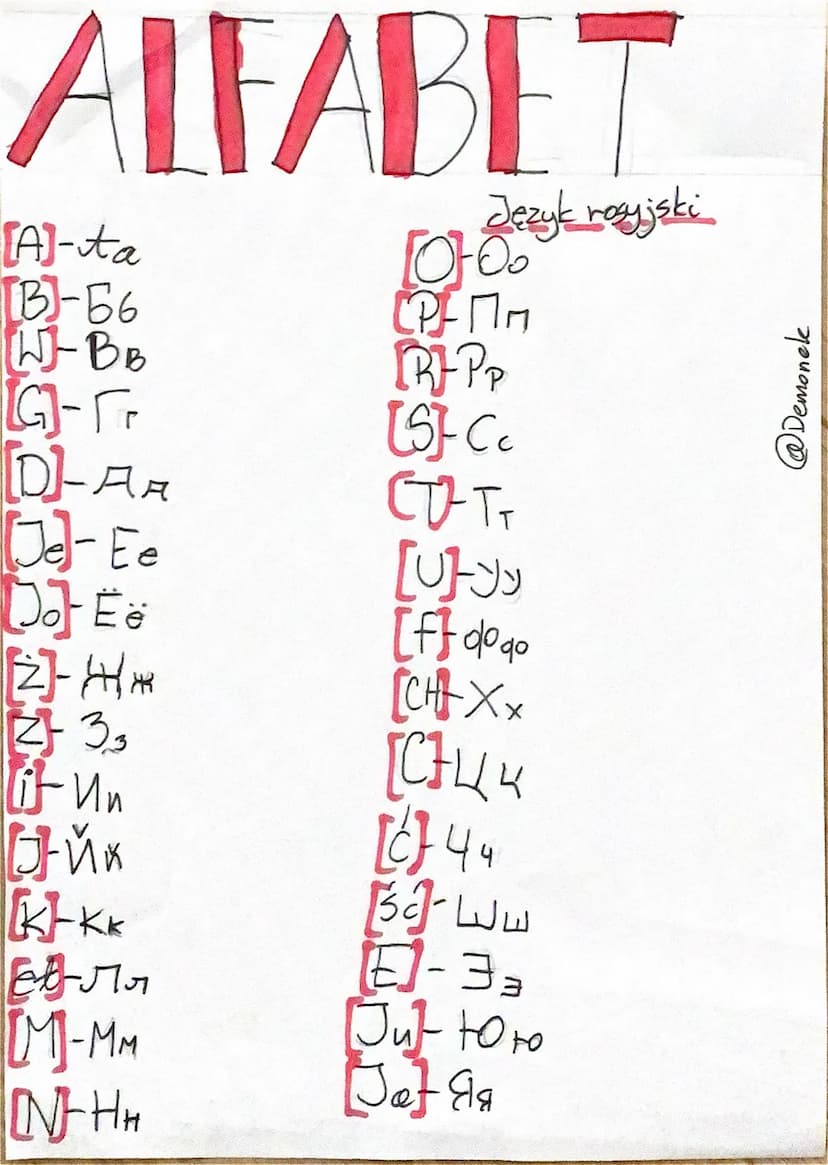 ALFABET
Język rosyjski
[A]-Aa
[B]-Бб
[W]-Вв
[G]-Гг
[D]-Дд
[Je]-Ее
[Jo]-Ёё
[Ż]-Жж
[Z]-Зз
[i]-Ии
[J]-Йй
[K]-Кк
[eł]-Лл
[M]-Мм
[N]-Нн
[O]-Оо
[P]-Пп
[R]-Рр
[S]-Сс
[T]-Тт
[U]-Уу
[f]-Фф
[CH]-Хх
[C]-Цц
[Ć]-Чч
[Ść]-Шш
[E]-Ээ
[Ju]-Юю
[Ja]-Яя
@Demonek